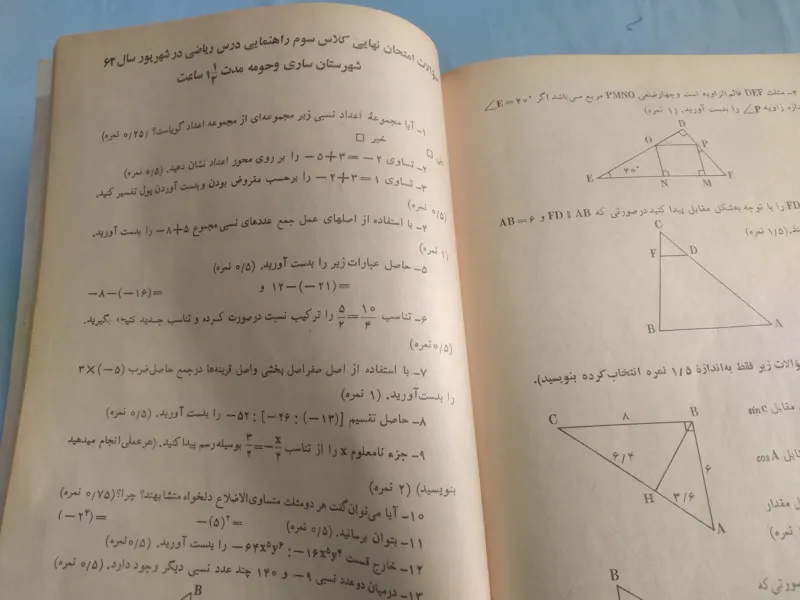 سؤالات امتحان نهایی کلاس سوم راهنمایی درس ریاضی در شهریور سال ۶۳
شهرستان ساری وحومه مدت ۱ ۱/۲ ساعت
۱- آیا مجموعهٔ اعداد نسبی زیر مجموعه‌ای از مجموعه اعداد گویاست؟ (۰/۲۵ نمره)
بلی □ خیر □
۲- تساوی ۲- = ۳+۵- را بر روی محور اعداد نشان دهید. (۰/۵ نمره)
۳- تساوی ۱ = ۳+۲- را برحسب مقروض بودن وبدست آوردن پول تفسیر کنید.
(۰/۵ نمره)
۴- با استفاده از اصلهای عمل جمع عددهای نسبی مجموع ۵+۸- را بدست آورید.
(۱ نمره)
۵- حاصل عبارات زیر را بدست آورید. (۰/۵ نمره)
−۸−(−۱۶)= و ۱۲−(−۲۱)=
۶- تناسب ۵/۲ = ۱۰/۴ را ترکیب نسبت درصورت کرده و تناسب جدید نتیجه بگیرید.
(۰/۵ نمره)
۷- با استفاده از اصل صفراصل پخشی واصل قرینه‌ها درجمع حاصل‌ضرب ۳×(−۵)
را بدست‌آورید. (۱ نمره)
۸- حاصل تقسیم −۵۲ : [−۲۶ : (−۱۳)] را بدست آورید. (۰/۵ نمره)
۹- جزء نامعلوم x را از تناسب ۳/۲ = −x/۲ بوسیله‌رسم پیدا کنید. (هرعملی‌انجام میدهید
بنویسید) (۲ نمره)
۱۰- آیا می‌توان‌گفت هر دومثلث متساوی‌الاضلاع دلخواه متشابهند؟ چرا؟ (۰/۷۵ نمره)
۱۱- بتوان برسانید. (۰/۵ نمره) −(۵)²= (−۲⁴)=
۱۲- خارج قسمت −۶۴x⁵y⁶ : −۱۶x⁵y⁴ را بدست آورید. (۰/۵ نمره)
۱۳- درمیان دوعدد نسبی ۹- و ۱۴۰ چند عدد نسبی دیگر وجود دارد. (۰/۵ نمره)
B
مثلث DEF قائم‌الزاویه است وچهارضلعی PMNO مربع می‌باشد اگر ∠E=۴۰°
زاویه ∠P را بدست آورید. (۱ نمره)
D
O P
۴۰°
E N M F
FD را با توجه به‌شکل مقابل پیدا کنید درصورتی که FD ∥ AB و AB=۶
(۱/۵ نمره)
C
F D
B A
سؤالات زیر فقط به‌اندازهٔ ۱/۵ نمره انتخاب‌کرده بنویسید).
مقابل sin c
C ۸ B
cosA
۶/۴ ۶
مقدار
H ۳/۶
A
نمره)
B
صورتی که